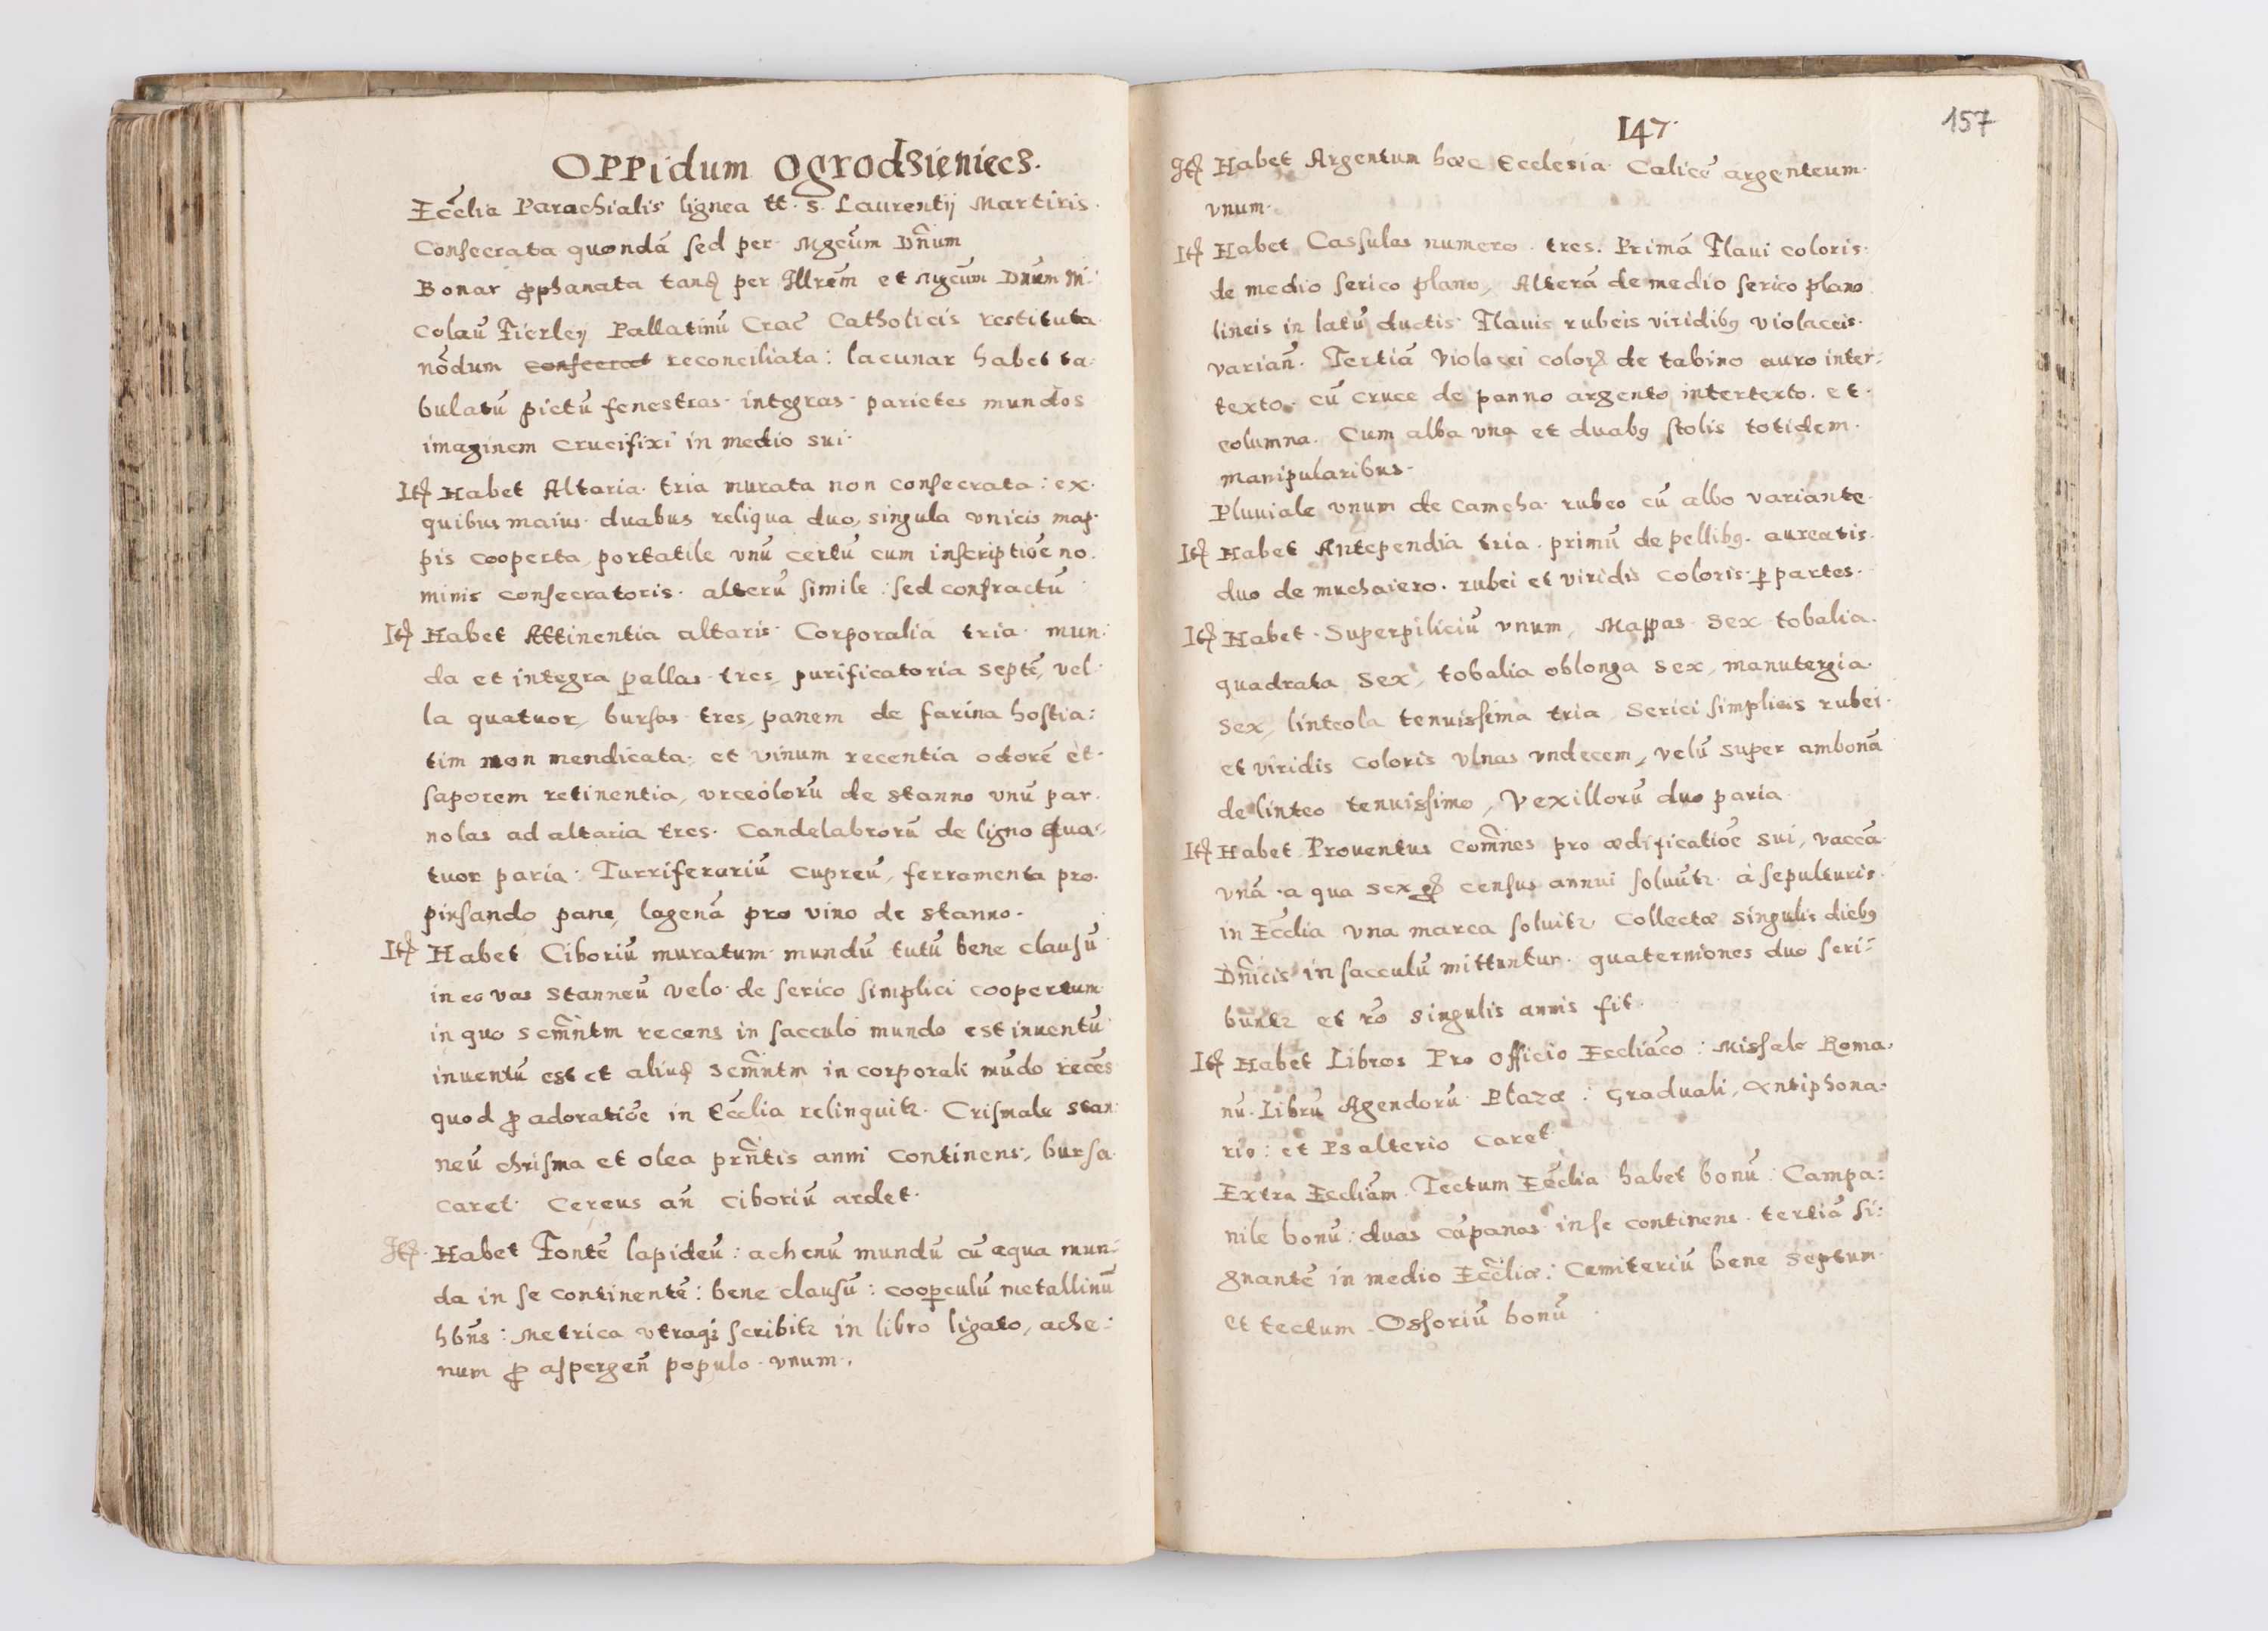 OPPidum Ogrodsieniecs.
Ecc̃lia Parachialis lignea tt. S. Laurentij Martiris.
Consecrata quondã sed per Mgcũm Dñum
Bonar ꝓphanata tanꝗ per Illrẽm et Mgcũm Dnũm Ni:
colaũ Firleij Pallatinũ Crac̃ Catholicis restituta
nõdum consecrat reconciliata: lacunar habet ta:
bulatũ pictũ fenestras integras parietes mundos
imaginem Crucifixi in medio sui.
Itꝫ Habet Altaria tria murata non consecrata: ex.
quibus maius duabus reliqua duo, singula vnicis map.
pis cooperta, portatile vnũ certũ cum inscriptiõe no.
minis consecratoris. alterũ simile: sed confractũ
Itꝫ Habet Attinentia altaris Corporalia tria mun:
da et integra pallas tres, purificatoria septẽ, vel
la quatuor, bursas tres, panem de farina hostia:
tim non mendicata; et vinum recentia odorẽ et
saporem retinentia, vrceolorũ de stanno vnũ par.
nolas ad altaria tres. Candelabrorũ de ligno qua:
tuor paria: Turriferariũ cupreũ, ferramenta pro.
pinsando pane, lagenã pro vino de stanno.
Itꝫ Habet Ciboriũ muratum mundũ tutũ bene clausũ
in eo vas stanneũ velo de serico simplici coopertum
in quo scm̃ntm recens in sacculo mundo est inuentũ
inuentũ est et aliuꝗ scm̃ntm in corporali mũdo recẽs
quod ꝓ adoratiõe in Ecc̃lia relinquitꝛ. Crismale stan:
neũ chrisma et olea prñtis anni continens, bursa
caret. Cereus añ ciboriũ ardet.
Itꝫ Habet Fontẽ lapideũ: achenũ mundũ cũ aqua mun:
da in se continentẽ: bene clausũ: cooꝑculũ metallinũ
hbñs: Metrica vtraqꝫ scribitꝛ in libro ligato, ache:
num ꝓ aspergeñ populo vnum.
147.
157
Itꝫ Habet Argentum hæc Ecclesia Calicẽ argenteum
vnum.
Itꝫ Habet Cassulas numero tres. Primã Flaui coloris
de medio serico plano, Alterã de medio serico plano
lineis in latũ ductis Flauis rubeis viridibꝯ violaceis
variañ. Tertiã Violacei colorꝫ de tabino auro inter:
texto. cũ cruce de panno argento intertexto. et
columna. Cum alba vna et duabꝯ stolis totidem
manipularibus.
Pluuiale vnum de Camcha rubeo cũ albo variante
Itꝫ Habet Antependia tria. primũ de pellibꝯ aureatis.
duo de muchaiero. rubei et viridis coloris ꝑ partes.
Itꝫ Habet Superpiliciũ vnum, Mappas sex tobalia
quadrata sex, tobalia oblonga sex, manutergia
sex, linteola tenuissima tria, Serici simplicis rubei
et viridis coloris vlnas vndecem, velũ super ambonã
de linteo tenuissimo, Vexillorũ duo paria
Itꝫ Habet Prouentus Com̃nes pro ædificatiõe sui, vaccã
vnã a qua sex gꝫ census annui soluũtꝛ. à sepulturis
in Ecc̃lia vna marca soluitꝛ Collectæ singulis diebꝯ
Dñicis in sacculũ mittuntur. quaterniones duo scri:
buntꝛ et rõ singulis annis fit.
Itꝫ Habet Libros Pro Officio Eccliãco: Missale Roma:
nũ. Librũ Agendorũ Plazæ: Graduali, Antiphona:
rio: et Psalterio caret
Extra Eccliãm. Tectum Ecc̃lia habet bonũ: Campa:
nile bonũ: duas cãpanas in se continens tertiã si:
gnantẽ in medio Ecc̃liæ: Cæmiteriũ bene septum
et tectum. Ossoriũ bonũ